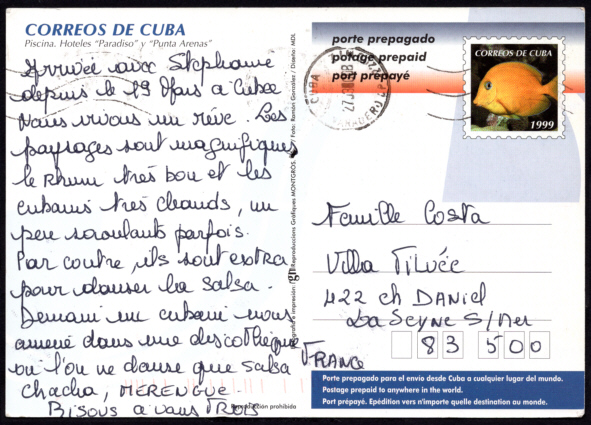 CORREOS DE CUBA
Piscina. Hoteles "Paradiso" y "Punta Arenas"
Arrivée avec Stephanie
depuis le 29 Mars a Cuba
nous vivons un rêve. Les
paysages sont magnifiques
le Rhum très bon et les
cubains très chauds, un
peu saoulants parfois.
Par contre, ils sont extra
pour danser la salsa.
Demain un cubain nous
amène dans une discothèque
où l'on ne danse que salsa
chacha, MERENGUE.
Bisous a vous TROIS
Reproducción prohibida
porte prepagado
potage prepaid
port prépayé
CORREOS DE CUBA
1999
CUBA
VARADERO
Famille Costa
Villa
422 ch DANIEL
La Seyne S/Mer
83 500
FRANCE
Porte prepagado para el envío desde Cuba a cualquier lugar del mundo.
Postage prepaid to anywhere in the world.
Port prépayé. Epédition vers n'importe quelle destination au monde.